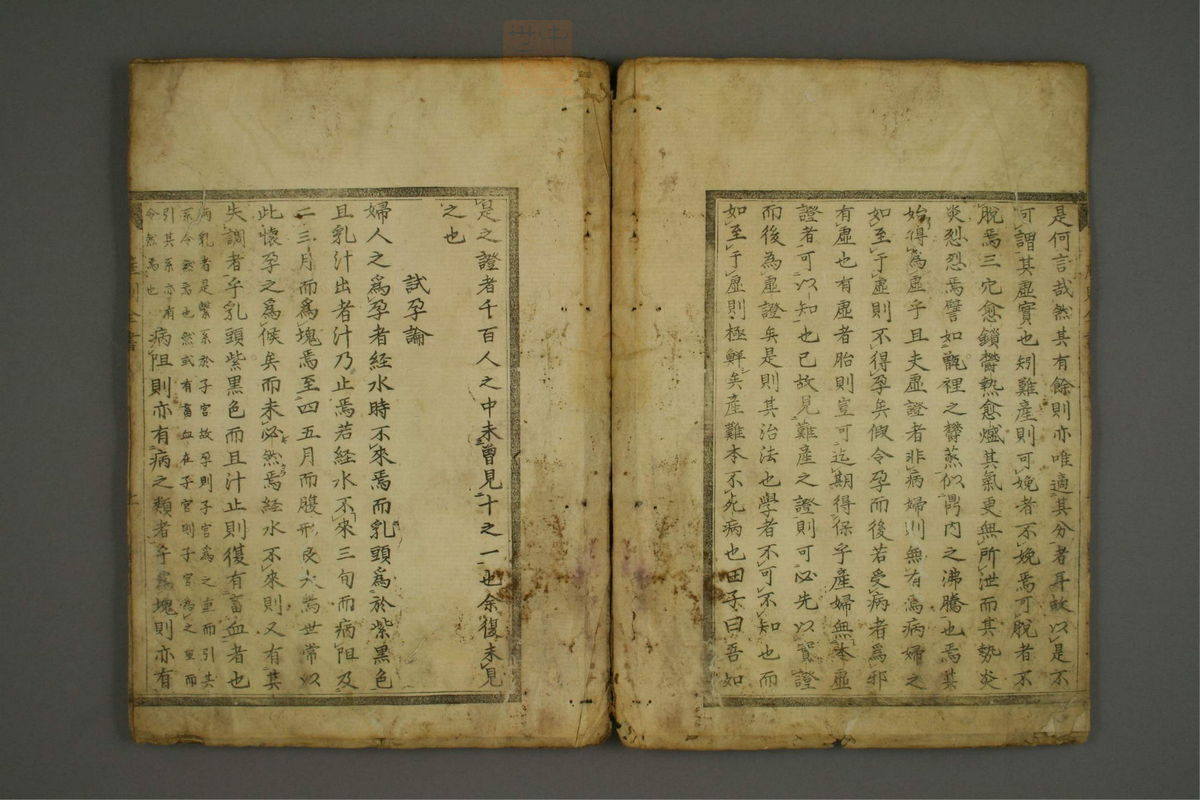 是何言哉然其有餘則亦唯適其分者耳故以是不
可謂其虛實也矧難產則可娩者不娩焉可脫者不
脫焉三宂愈鎖欝熱愈爐其氣更無所泄而其勢炎
炎烈烈焉譬如甑裡之欝蒸似鬲內之沸騰也焉其
始得為虛乎且夫虛證者非病婦則無有焉病婦之
如至于虛則不得孕矣假令孕而後若受病者為邪
有虛也有虛者胎則豈可迄期得保乎產婦無本虛
證者可以知也已故見難產之證則可必先以實證
而後為虛證矣是則其治法也學者不可不知也而
如至于虛則極鮮矣產難本不死病也田子曰吾如
是之證者千百人之中未曾見十之一也余復未見
之也
試孕論
婦人之為孕者經水時不來焉而乳頭為於紫黑色
且乳汁出者汁乃止焉若經水不來三旬而病阻及
二三月而為塊焉至四五月而腹形良大焉世常以
此懷孕之為候矣而未必然焉經水不來則又有其
失調者乎乳頭紫黑色而且汁止則復有畜血者也
兩乳者是繫系於子宮故孕則子宮為之重而引其
系令然者也然或有畜血在子宮則子宮為之重而
引其系亦有
令然焉也
病阻則亦有病之類者乎為塊則亦有